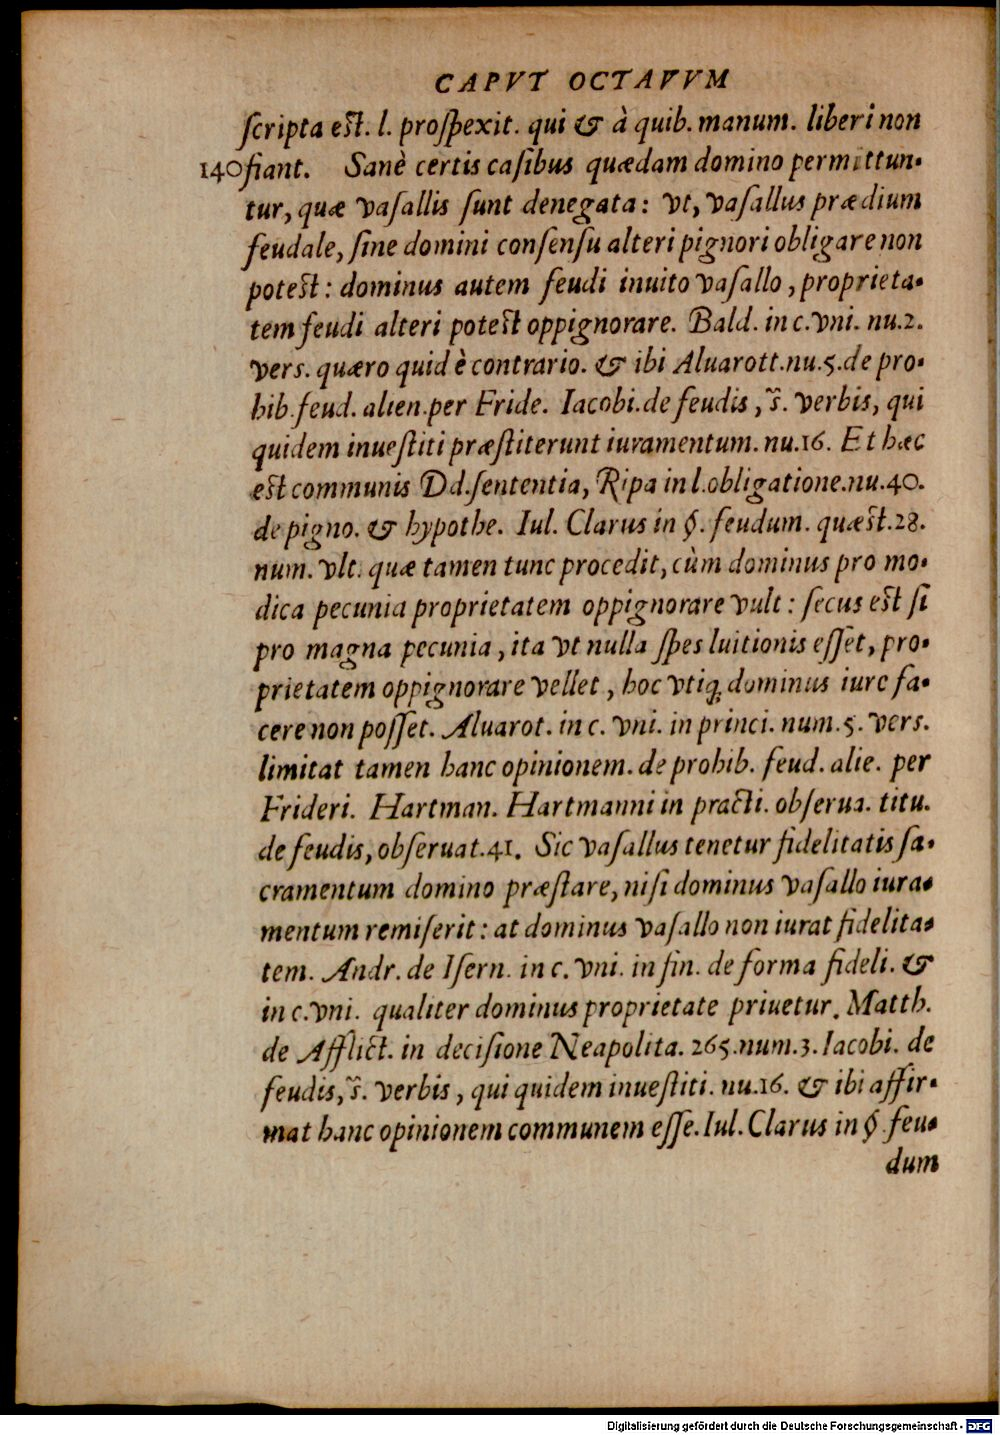 CAPVT OCTAVVM
ſcripta eſt. l. proſpexit. qui & à quib. manum. liberi non
140 fiant. Sanè certis caſibus quædam domino permittun-
tur, quæ vaſallis ſunt denegata: vt, vaſallus prædium
feudale, ſine domini conſenſu alteri pignori obligare non
poteſt: dominus autem feudi inuito vaſallo, proprieta-
tem feudi alteri poteſt oppignorare. Bald. in c. vni. nu. 2.
vers. quæro quid è contrario. & ibi Aluarott. nu. 5. de pro-
hib. feud. alien. per Fride. Iacobi. de feudis, s̃. verbis, qui
quidem inueſtiti præſtiterunt iuramentum. nu. 16. Et hæc
eſt communis Dd. ſententia, Ripa in l. obligatione. nu. 40.
de pigno. & hypothe. Iul. Clarus in §. feudum. quæſt. 28.
num. vlt. quæ tamen tunc procedit, cùm dominus pro mo-
dica pecunia proprietatem oppignorare vult: ſecus eſt ſi
pro magna pecunia, ita vt nulla ſpes luitionis eſſet, pro-
prietatem oppignorare vellet, hoc vtiq; dominus iure fa-
cere non poſſet. Aluarot. in c. vni. in princi. num. 5. vers.
limitat tamen hanc opinionem. de prohib. feud. alie. per
Frideri. Hartman. Hartmanni in practi. obſerua. titu.
de feudis, obſeruat. 41. Sic vaſallus tenetur fidelitatis ſa-
cramentum domino præſtare, niſi dominus vaſallo iura-
mentum remiſerit: at dominus vaſallo non iurat fidelita-
tem. Andr. de Iſern. in c. vni. in fin. de forma fideli. &
in c. vni. qualiter dominus proprietate priuetur. Matth.
de Afflict. in deciſione Neapolita. 265. num. 3. Iacobi. de
feudis, s̃. verbis, qui quidem inueſtiti. nu. 16. & ibi affir-
mat hanc opinionem communem eſſe. Iul. Clarus in §. feu-
dum
Digitalisierung gefördert durch die Deutsche Forschungsgemeinschaft - DFG